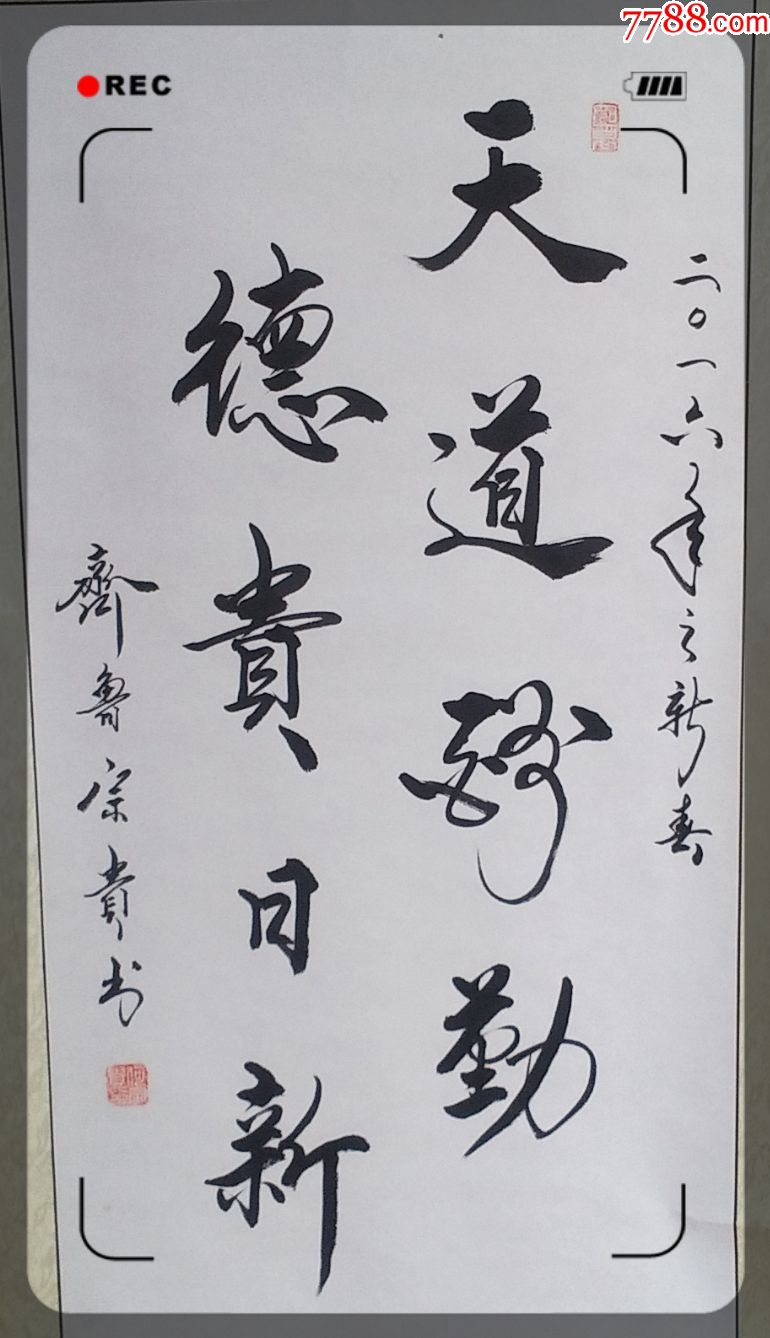 7788.com
REC
二〇一六年之新春
天道酬勤
德貴日新
齊魯宗貴书